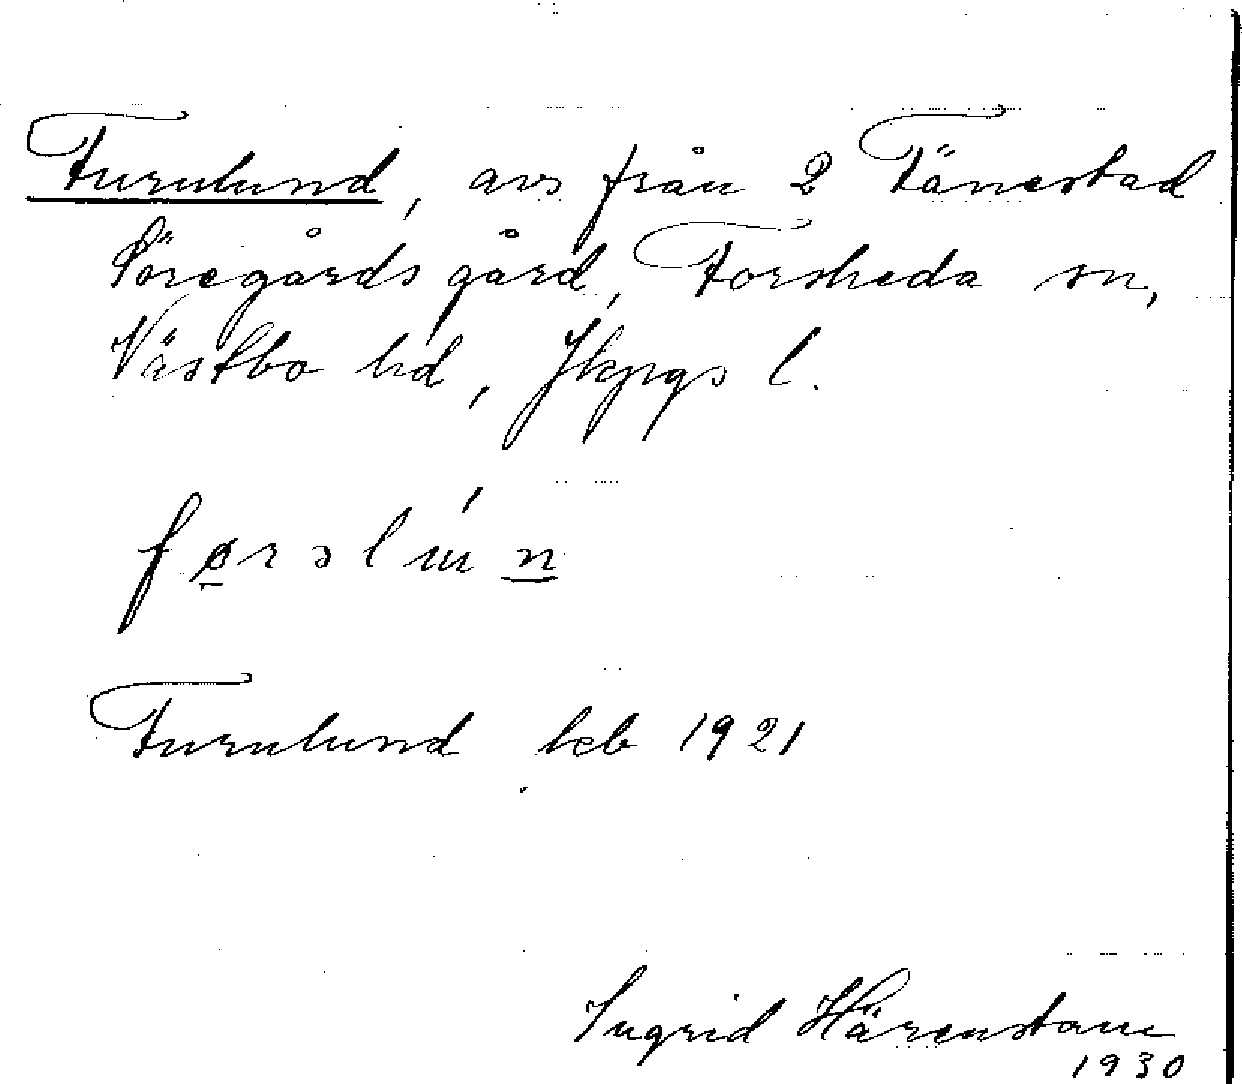 Furulund, avs från 2 Fänestad
Söregårds gård, Forsheda sn,
Västbo hd, Jkpgs l.
Furulund beb 1921
Ingrid Härenstam
1930